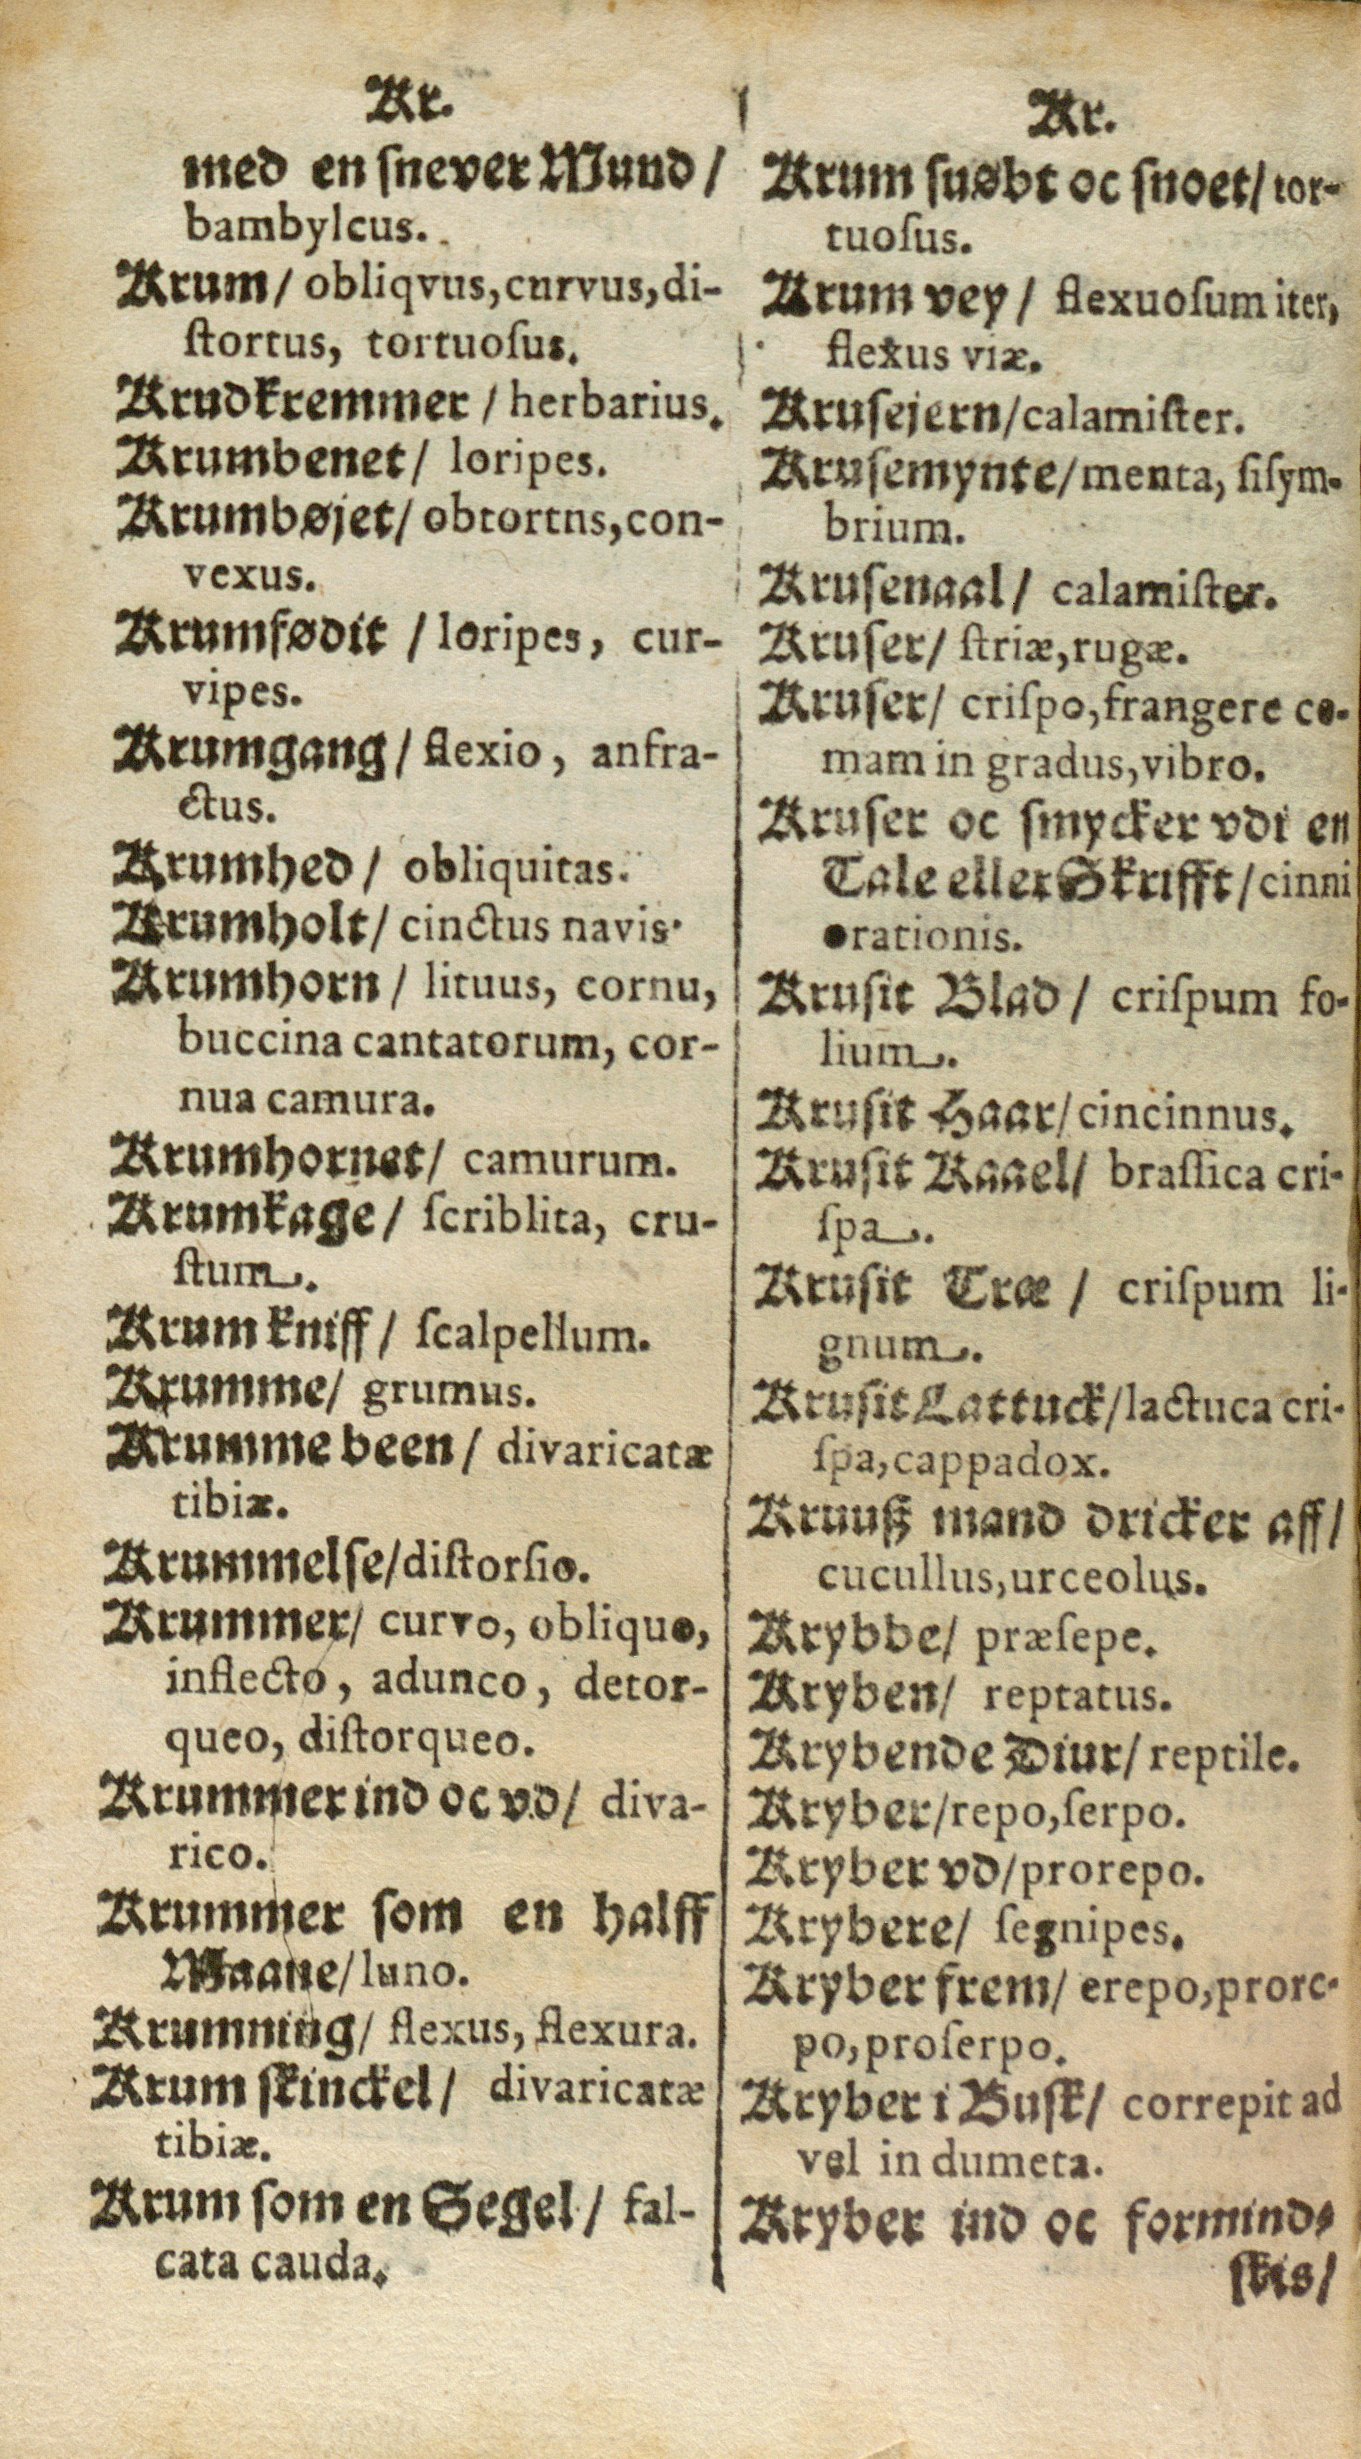 Kr.
med en ſnever Mund /
bambylcus.
Krum / obliqvus, cnrvus, di-
ſtortus, tortuoſus.
Krudkremmer / herbarius.
Krumbenet / loripes.
Krumbøjet / obtortns, con-
vexus.
Krumfødit / loripes, cur-
vipes.
Krumgang / flexio, anfra-
ctus.
Krumhed / obliquitas.
Krumholt / cinctus navis.
Krumhorn / lituus, cornu,
buccina cantatorum, cor-
nua camura.
Krumhornet / camurum.
Krumkage / ſcriblita, cru-
ſtum.
Krum kniff / ſcalpellum.
Krumme / grumus.
Krumme been / divaricatæ
tibiæ.
Krummelſe / diſtorſio.
Krummer / curvo, obliquo,
inflecto, adunco, detor-
queo, diſtorqueo.
Krummer ind oc vd / diva-
rico.
Krummer ſom en halff
Maane / luno.
Krumning / flexus, flexura.
Krum ſkinckel / divaricatæ
tibiæ.
Krum ſom en Segel / fal-
cata cauda.
Kr.
Krum ſuøbt oc ſnoet / tor-
tuoſus.
Krum vey / flexuoſum iter,
flexus viæ.
Kruſejern / calamiſter.
Kruſemynte / menta, ſiſym-
brium.
Kruſenaal / calamiſter.
Kruſer / ſtriæ, rugæ.
Kruſer / criſpo, frangere co-
mam in gradus, vibro.
Kruſer oc ſmycker vdi en
Tale eller Skrifft / cinni
orationis.
Kruſit Blad / criſpum fo-
lium.
Kruſit Haar / cincinnus.
Kruſit Kaael / braſſica cri-
ſpa.
Kruſit Træ / criſpum li-
gnum.
Kruſit Lattuck / lactuca cri-
ſpa, cappadox.
Kruuß mand dricker aff /
cucullus, urceolus.
Krybbe / præſepe.
Kryben / reptatus.
Krybende Diur / reptile.
Kryber / repo, ſerpo.
Kryber vd / prorepo.
Krybere / ſegnipes.
Kryber frem / erepo, prore-
po, proſerpo.
Kryber i Buſk / correpit ad
vel in dumeta.
Kryber ind oc formind-
ſkis /